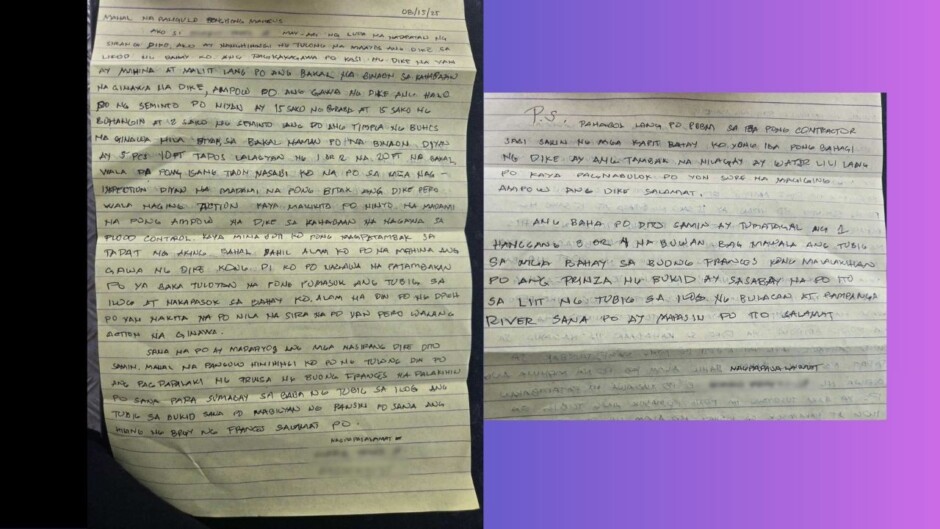 08/15/25
MAHAL NA PANGULO BONGBONG MARCOS
AKO SI MAY-ARI NG LUPA NA NADAANAN NG
DIKE, AKO AY HUMIHINGI NG TULONG NA MAAYOS ANG DIKE SA
LIKOD NG BAHAY KO ANG PAGKAKAGAWA PO KASI NG DIKE NA YAN
AY MAHINA AT MALIIT LANG PO ANG BAKAL NA BINAON SA
NA GINAWA NA DIKE, AMPOW PO ANG GAWA NG DIKE ANG HALO
PO NG SEMINTO PO NIYAN AY 15 SAKO NG GRABA AT 15 SAKO NG
BUHANGIN AT 2 SAKO NG SEMINTO ANG PO ANG TIMPLA NG BUHOS
NA GINAWA NILA SA BAKAL NAMAN PO NA BINAON DIYAN
AY 5 PCS 10FT TAPOS LALAGYAN NG 1 OR 2 NA 20FT NA BAKAL,
WALA PA PONG ISANG TAON NASABI KO NA PO SA MGA NAG-
INSPECTION DIYAN NA MADAMI NA PONG BITAK ANG DIKE PERO
WALA NAGING ACTION KAYA MAKIKITA PO NINYO NA MADAMI
NA PONG AMPOW NA DIKE SA KAHABAAN NA NAGAWA SA
FLOOD CONTROL KAYA MINABUTI KO PONG MAGPATAMBAK SA
TAPAT NG AKING BAHAY, DAHIL ALAM KO PO NA MAHINA ANG
GAWA NG DIKE KONG DI KO PO NAGAWA NA PATAMBAKAN
PO YA BAKA TULOYAN NA PONG PUMASOK ANG TUBIG SA
ILOG AT NAKAPASOK SA BAHAY KO, ALAM NA DIN PO NG DPWH
PO YAN NAKITA NA PO NILA NA SIRA NA PO YAN PERO WALANG
ACTION NA GINAWA.
SANA NA PO AY MAPAAYOS ANG MGA NASIRANG DIKE DITO
SAMIN, MAHAL NA PANGULO HINIHINGI KO PO NG TULONG DIN PO
ANG PAGPAPALAKI NG NG BUONG FRANCES NA PALAKIHIN
PO SANA PARA SUMABAY SA BABA NG TUBIG SA ILOG ANG
TUBIG SA BUKID SANA PO MABIGYAN NG PANSIN PO SANA ANG
HILING NG BRGY NG FRANCES SALAMAT PO.
NAGPAPASALAMAT
P.S. PAHABOL LANG PO PERO SA IBA PONG CONTRACTOR
SABI SAKIN NG MGA KAPIT BAHAY KO YONG IBA PONG BAHAGI
NG DIKE AY ANG TAMBAK NA NILAGAY AY WATER LILI LANG
PO KAYA PAGNABULOK PO YON SURE NA MAGIGING
AMPOW ANG DIKE SALAMAT.
ANG BAHA PO DITO SAMIN AY TUMATAGAL NG 1
HANGGANG 3 OR 4 NA BUWAN BAG MAWALA ANG TUBIG
SA MGA BAHAY SA BUONG FRANCES KONG MALALAKIHAN
PO ANG PRINZA NG BUKID AY SASABAY NA PO ITO
SA LIIT NG TUBIG SA ILOG NG BULACAN AT PAMPANGA
RIVER SANA PO AY MAPASIN PO ITO SALAMAT
NAGPAPASALAMAT